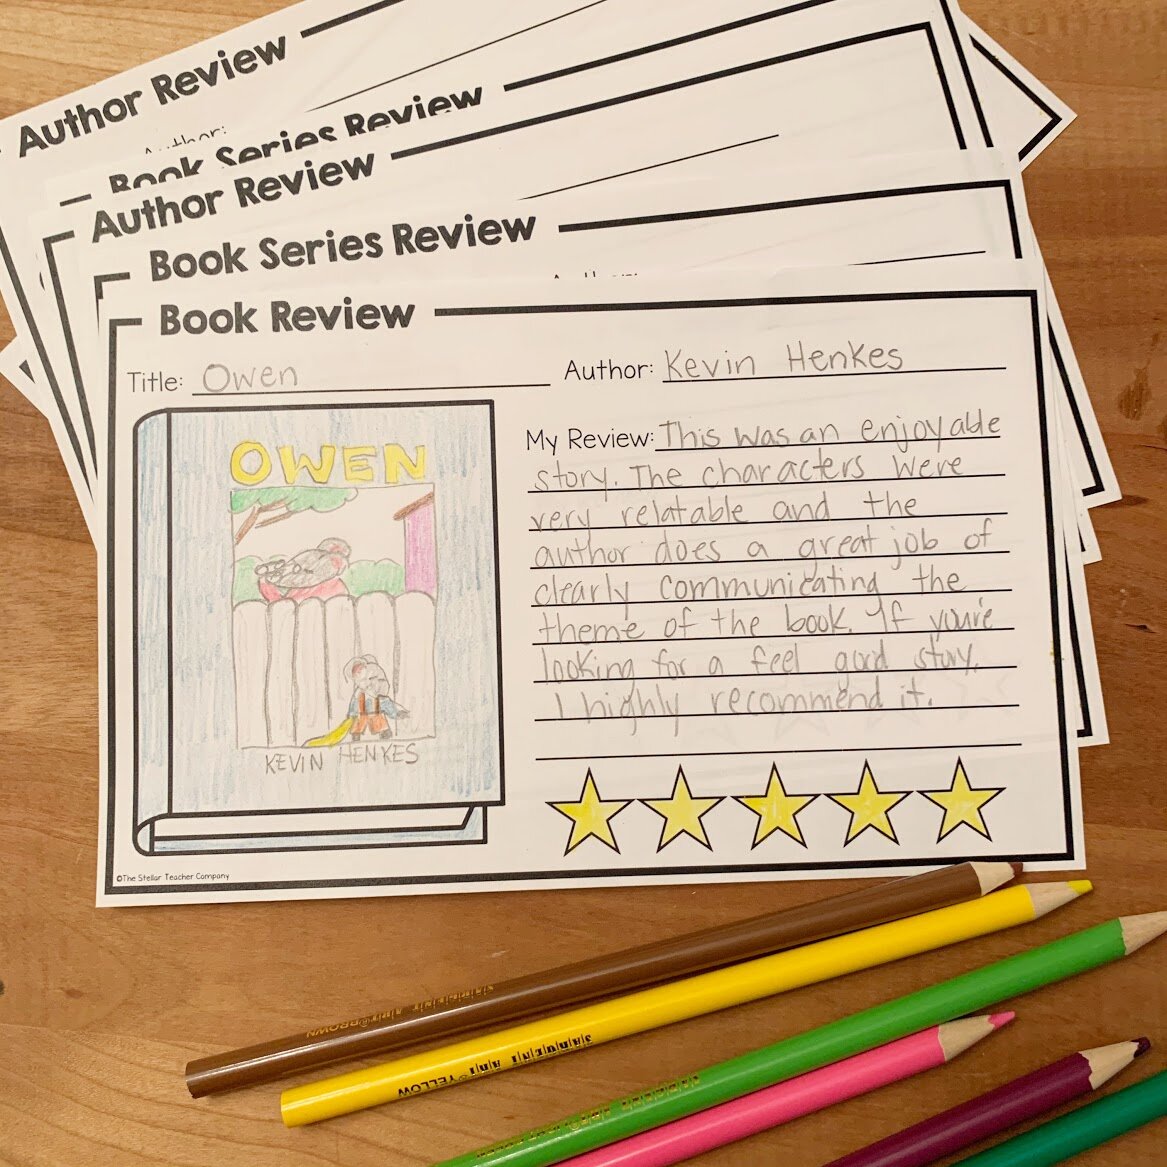 Author Review
Author:
Book Series Review
Author Review
Book Series Review
Book Review
Title: Owen
Author: Kevin Henkes
OWEN
KEVIN HENKES
My Review: This was an enjoyable
story. The characters were
very relatable and the
author does a great job of
clearly communicating the
theme of the book. If you're
looking for a feel good story.
I highly recommend it.
©The Stellar Teacher Company
BROWN
YELLOW